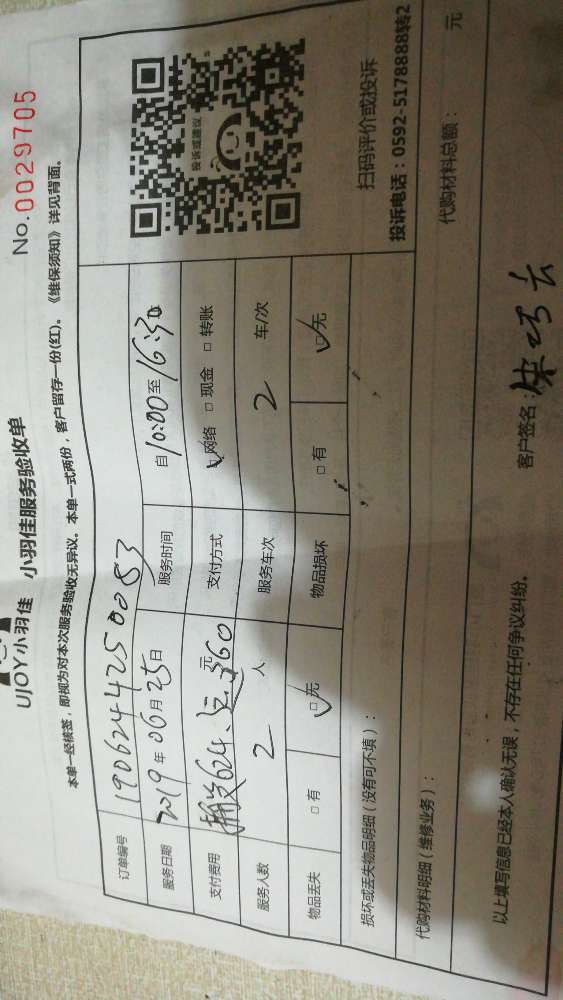 No.0029705
UJOY小羽佳 小羽佳服务验收单
本单一经核签，即视为对本次服务验收无异议。本单一式两份，客户留存一份(红)。《维保须知》详见背面。
订单编号 1906244250083
服务日期 2019年06月25日 服务时间 自10:00至16:30
支付费用 624、360元 支付方式 网络 □ 现金 □ 转账
服务人数 2 人 服务车次 2 车/次
物品丢失 □ 有 □ 无 物品损坏 □ 有 □ 无
投诉或建议
扫码评价或投诉
投诉电话：0592-5178888转2
损坏或丢失物品明细（没有可不填）：
代购材料明细（维修业务）： 代购材料总额： 元
以上填写信息已经本人确认无误，不存在任何争议纠纷。 客户签名：